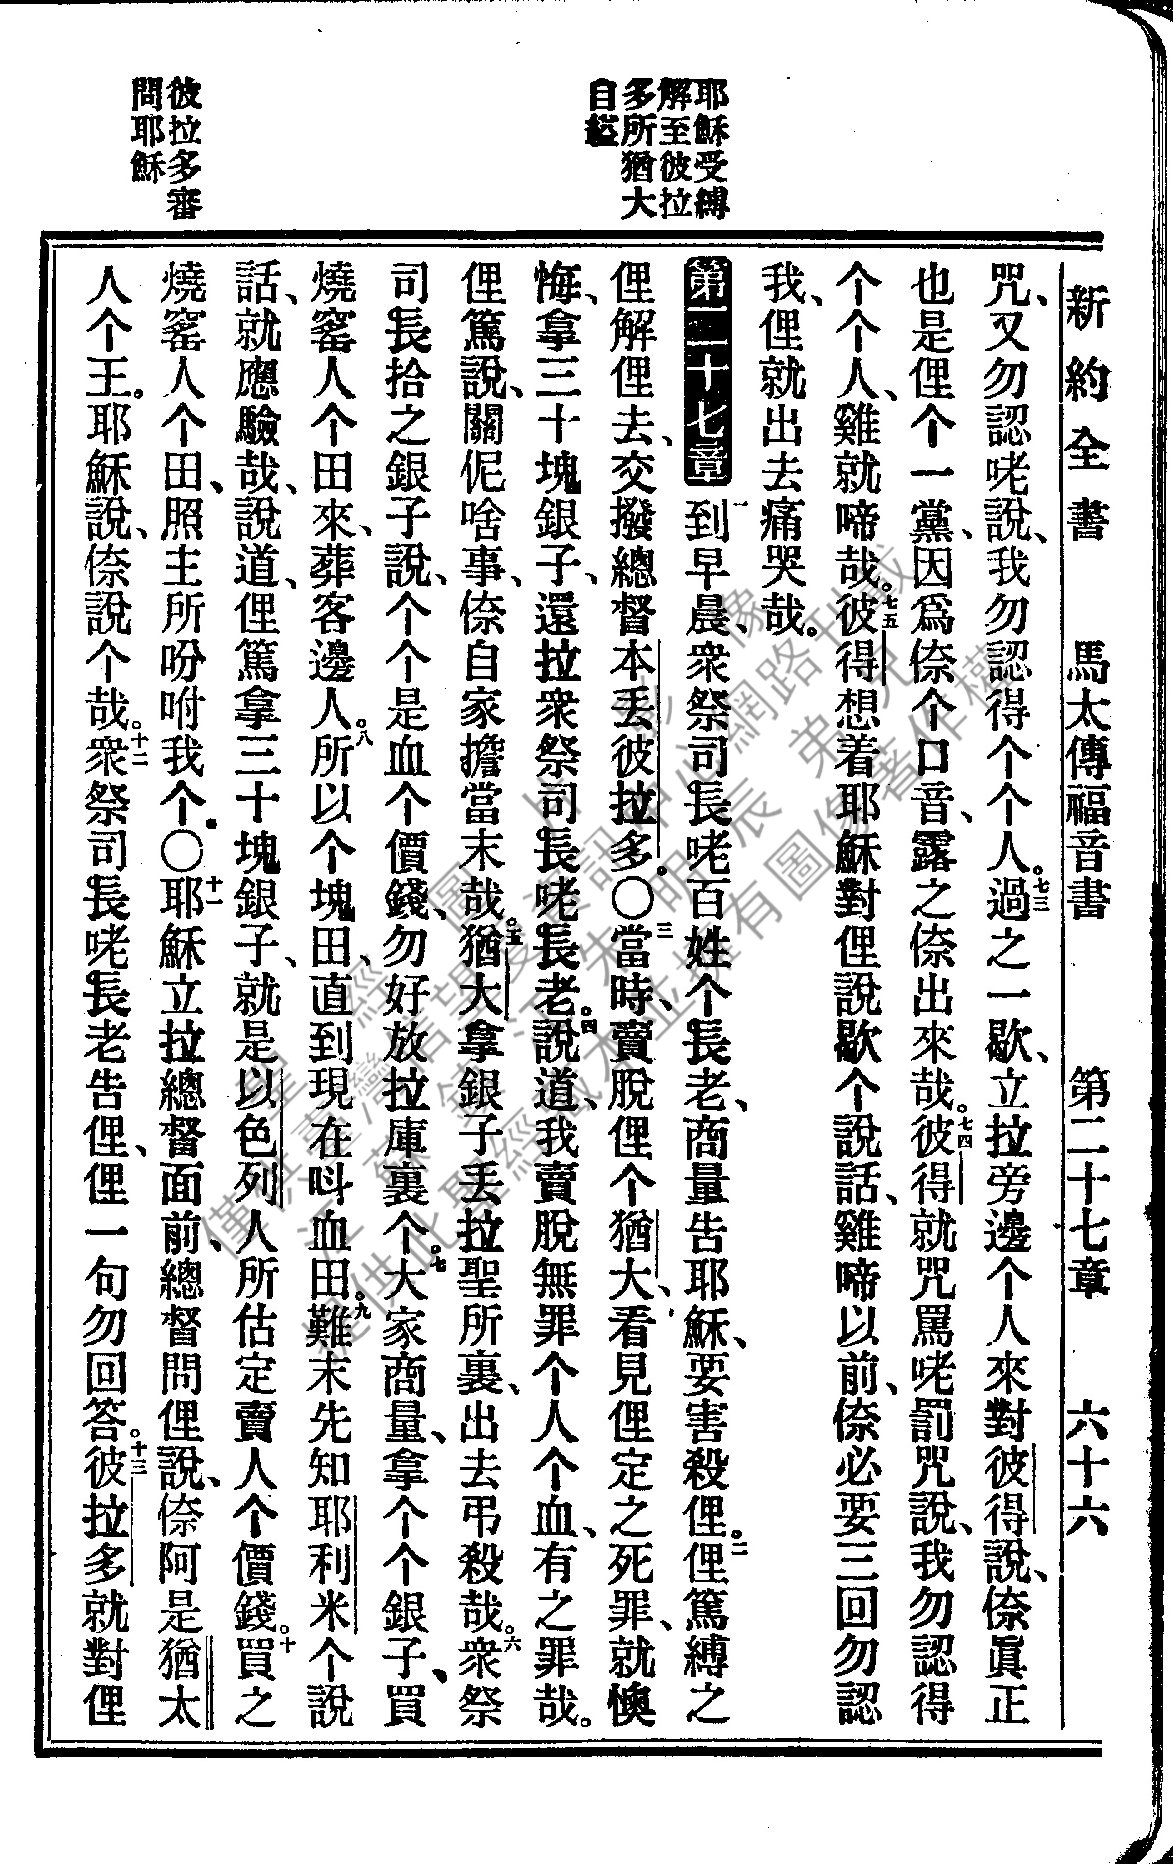 新約全書 馬太傳福音書 第二十七章 六十六
咒、又勿認咾說、我勿認得个个人。七三過之一歇、立拉旁邊个人來對彼得說、倷眞正
也是俚个一黨、因爲倷个口音、露之倷出來哉。七四彼得就咒罵咾罰咒說、我勿認得
个个人、雞就啼哉。七五彼得想着耶穌對俚說歇个說話、雞啼以前、倷必要三回勿認
我、俚就出去痛哭哉。
第二十七章 一到早晨、衆祭司長咾百姓个長老、商量告耶穌、要害殺俚。二俚篤縛之
俚解俚去、交撥總督本丢彼拉多。〇三當時、賣脫俚个猶大、看見俚定之死罪、就懊
悔、拿三十塊銀子、還拉衆祭司長咾長老。四說道、我賣脫無罪个人个血、有之罪哉。
俚篤說、關伲啥事、倷自家擔當末哉。五猶大拿銀子丢拉聖所裏、出去弔殺哉。六衆祭
司長拾之銀子說、个个是血个價錢、勿好放拉庫裏个。七大家商量、拿个个銀子、買
燒窰人个田來、葬客邊人。八所以个塊田、直到現在呌血田。九難末先知耶利米个說
話、就應驗哉、說道、俚篤拿三十塊銀子、就是以色列人所估定賣人个價錢。十買之
燒窰人个田、照主所吩咐我个。〇十一耶穌立拉總督面前、總督問俚說、倷阿是猶太
人个王。耶穌說、倷說个哉。十二衆祭司長咾長老告俚、俚一句勿回答。十三彼拉多就對俚
耶穌受縛
解至彼拉
多所猶大
自縊
彼拉多審
問耶穌